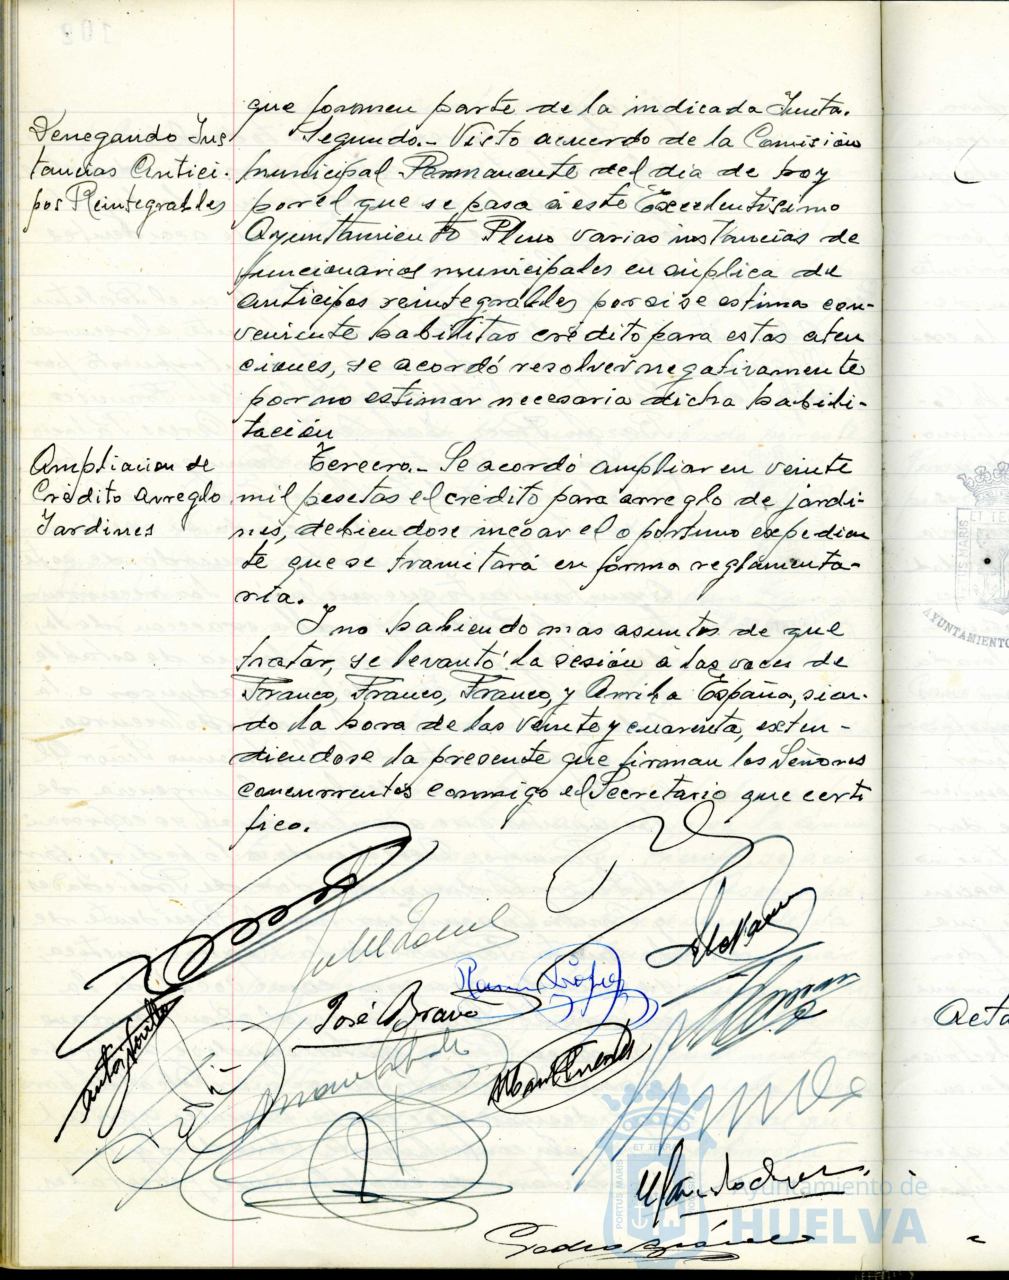 que formen parte de la indicada Junta.
Denegando Ins
tancias Antici-
pos Reintegrables
Segundo.- Visto acuerdo de la Comisión
municipal Permanente del dia de hoy
por el que se pasa a este Excelentisimo
Ayuntamiento Pleno varias instancias de
funcionarios municipales en suplica de
anticipos reintegrables por si se estima con-
veniente habilitar crédito para estas aten
ciones, se acordó resolver negativamente
por no estimar necesaria dicha habili-
tación
Ampliacion de
Crédito arreglo
Jardines
Tercero.- Se acordó ampliar en veinte
mil pesetas el crédito para arreglo de jardi-
nes, debiendose incoar el oportuno expedien
te que se tramitará en forma reglamenta-
ria.
Y no habiendo mas asuntos de que
tratar, se levantó la sesión a las voces de
Franco, Franco, Franco, y Arriba España, sien-
do la hora de las veinte y cuarenta, exten-
diendose la presente que firman los Señores
concurrentes conmigo el Secretario que certi
fico.
José Bravo
Acta
AYUNTAMIENTO
PORTUS MARIS
ET TERRAE
Ayuntamiento de
HUELVA